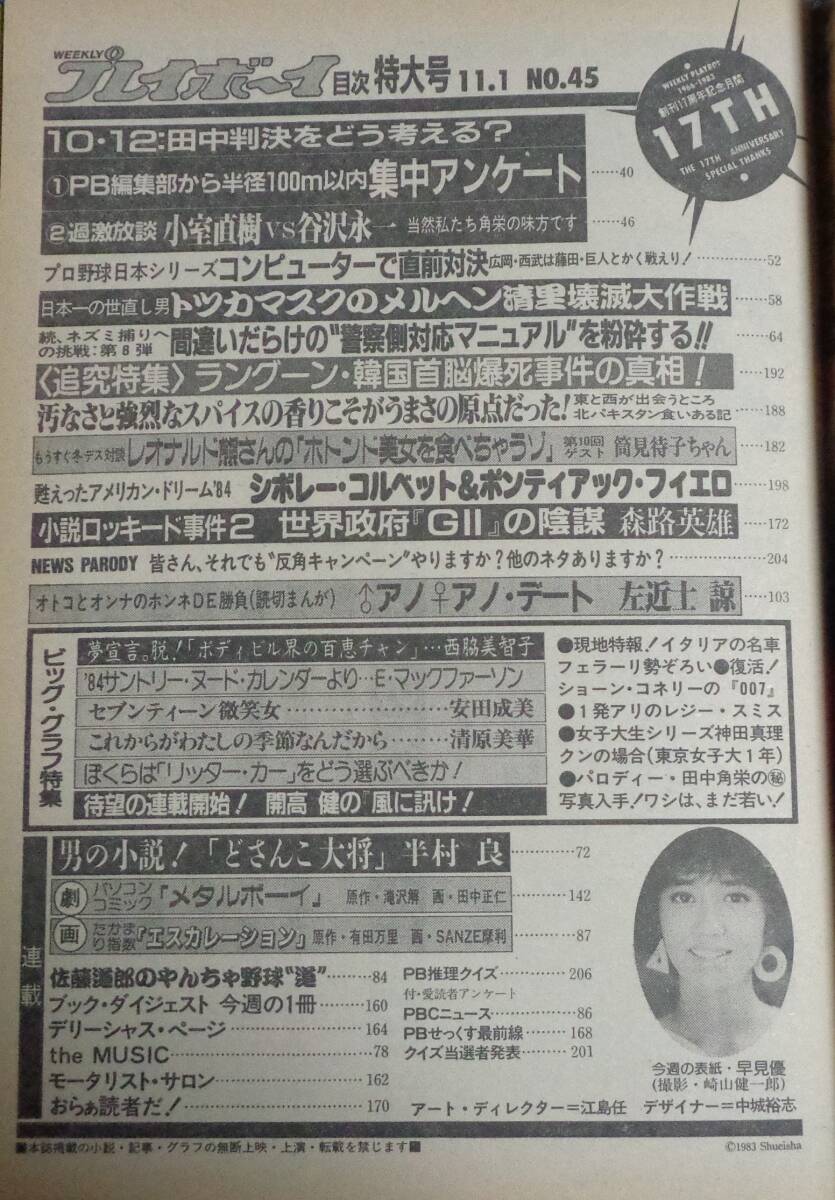 WEEKLY
プレイボーイ 目次 特大号 11.1 NO.45
WEEKLY PLAYBOY
1966-1983
創刊17周年記念月間
17TH
THE 17TH ANNIVERSARY
SPECIAL THANKS
10・12:田中判決をどう考える?
①PB編集部から半径100m以内集中アンケート……40
②過激放談 小室直樹VS谷沢永一 当然私たち角栄の味方です……46
プロ野球日本シリーズコンピューターで直前対決 広岡・西武は藤田・巨人とかく戦えり!……52
日本一の世直し男 トツカマスクのメルヘン清里壊滅大作戦……58
続、ネズミ捕りへの挑戦:第8弾 間違いだらけの"警察側対応マニュアル"を粉砕する!!……64
〈追究特集〉ラングーン・韓国首脳爆死事件の真相!……192
汚なさと強烈なスパイスの香りこそがうまさの原点だった! 東と西が出会うところ 北パキスタン食いある記……188
もうすぐ冬デス対談 レオナルド熊さんの「ホトンド美女を食べちゃうゾ」 第10回ゲスト 筒見待子ちゃん……182
甦えったアメリカン・ドリーム'84 シボレー・コルベット&ポンティアック・フィエロ……198
小説ロッキード事件2 世界政府『GII』の陰謀 森路英雄……172
NEWS PARODY 皆さん、それでも"反角キャンペーン"やりますか?他のネタありますか?……204
オトコとオンナのホンネDE勝負(読切まんが) ♂アノ♀アノ・デート 左近士 諒……103
ビッグ・グラフ特集
夢宣言。脱!「ボディビル界の百恵チャン」…西脇美智子
'84サントリー・ヌード・カレンダーより…E・マックファーソン
セブンティーン微笑女……安田成美
これからがわたしの季節なんだから……清原美華
ぼくらは「リッター・カー」をどう選ぶべきか!
待望の連載開始! 開高 健の『風に訊け!
●現地特報!イタリアの名車
フェラーリ勢ぞろい●復活!
ショーン・コネリーの『007』
●1発アリのレジー・スミス
●女子大生シリーズ神田真理
クンの場合(東京女子大1年)
●パロディー・田中角栄の㊙
写真入手!ワシは、まだ若い!
連載
男の小説!「どさんこ大将」半村 良……72
劇 パソコンコミック『メタルボーイ』 原作・滝沢解 画・田中正仁……142
画 たかまり指数『エスカレーション』 原作・有田万里 画・SANZE摩利……87
佐藤道郎のやんちゃ野球"道"……84
ブック・ダイジェスト 今週の1冊……160
デリーシャス・ページ……164
the MUSIC……78
モータリスト・サロン……162
おらぁ読者だ!……170
PB推理クイズ……206
付・愛読者アンケート
PBCニュース……86
PBせっくす最前線……168
クイズ当選者発表……201
今週の表紙・早見優
(撮影・崎山健一郎)
アート・ディレクター=江島任 デザイナー=中城裕志
■本誌掲載の小説・記事・グラフの無断上映・上演・転載を禁じます■
©1983 Shueisha